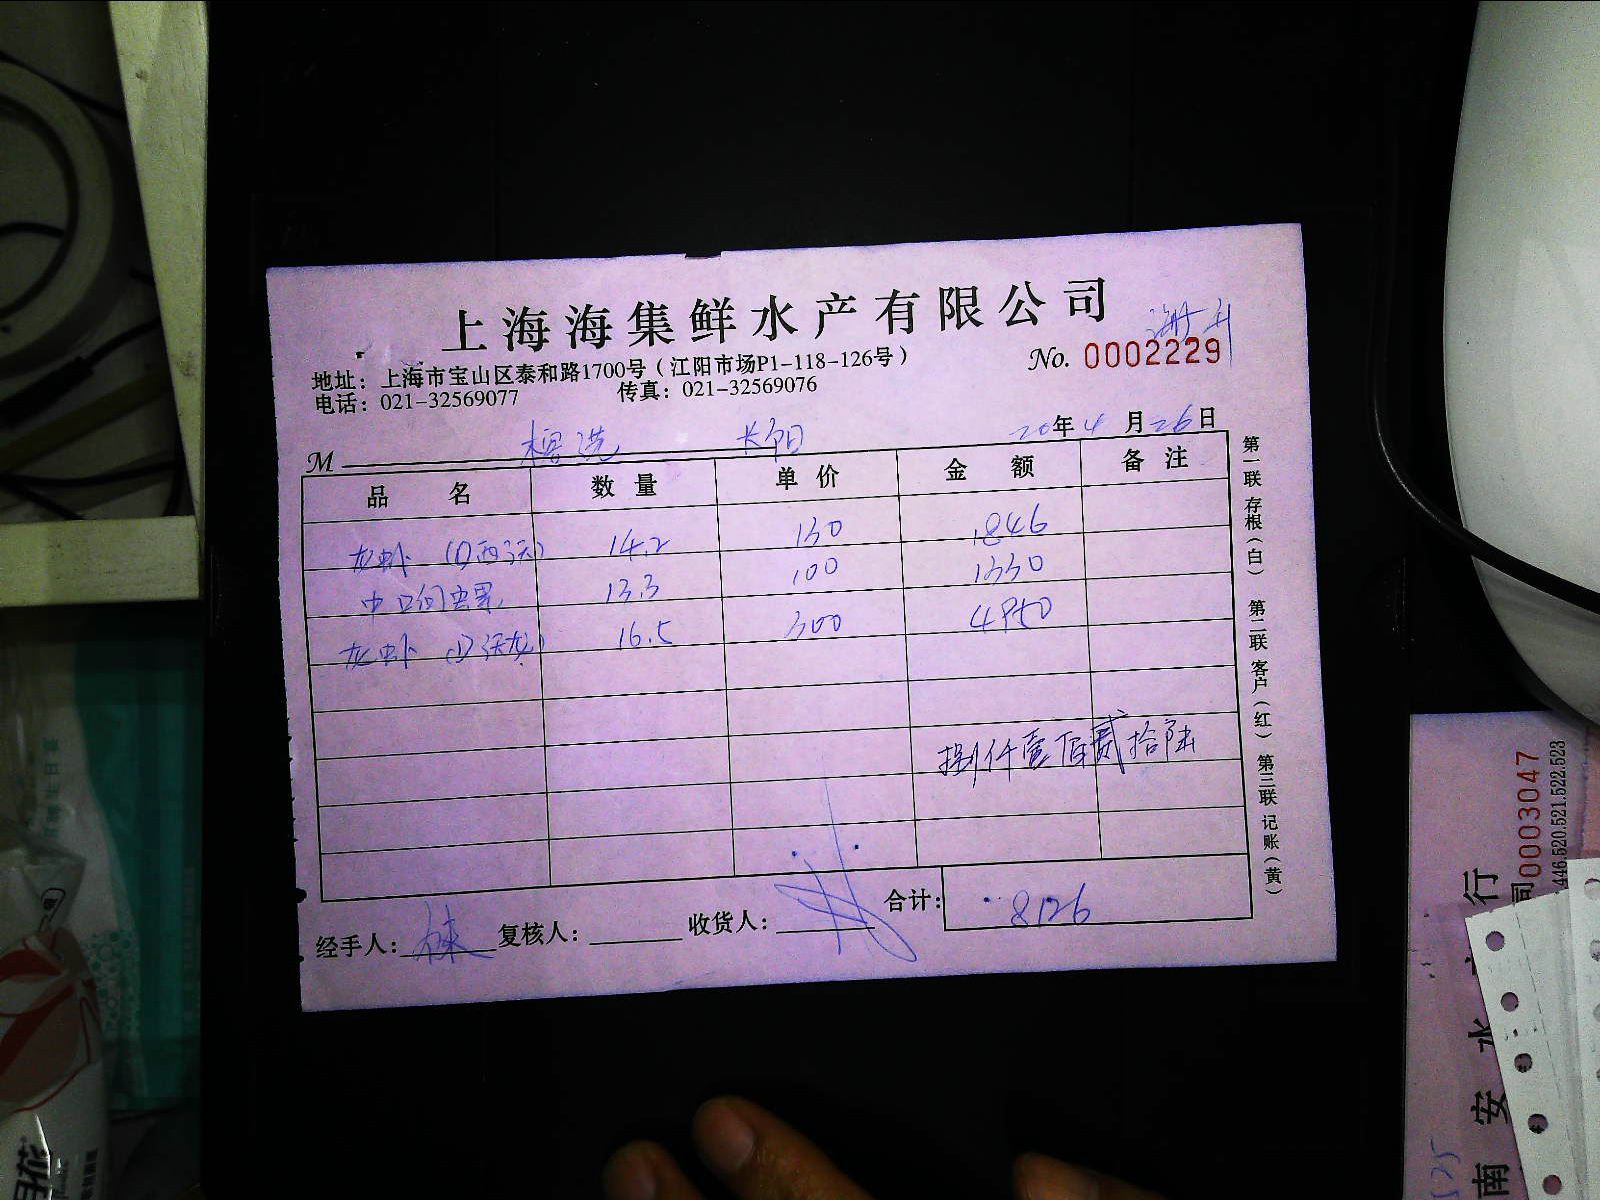 上海海集鲜水产有限公司
地址：上海市宝山区泰和路1700号（江阳市场P1-118-126号）
No. 0002229
电话：021-32569077 传真：021-32569076
20年4月26日
M
品名 数量 单价 金额 备注
龙虾 14.2 130 1846
13.3 100 1330
龙虾 16.5 300 4950
捌仟壹佰贰拾陆
合计：8126
经手人： 复核人： 收货人：
第一联 存根（白） 第二联 客户（红） 第三联 记账（黄）
0003047
446.520.521.522.523
行
司
南安水
525